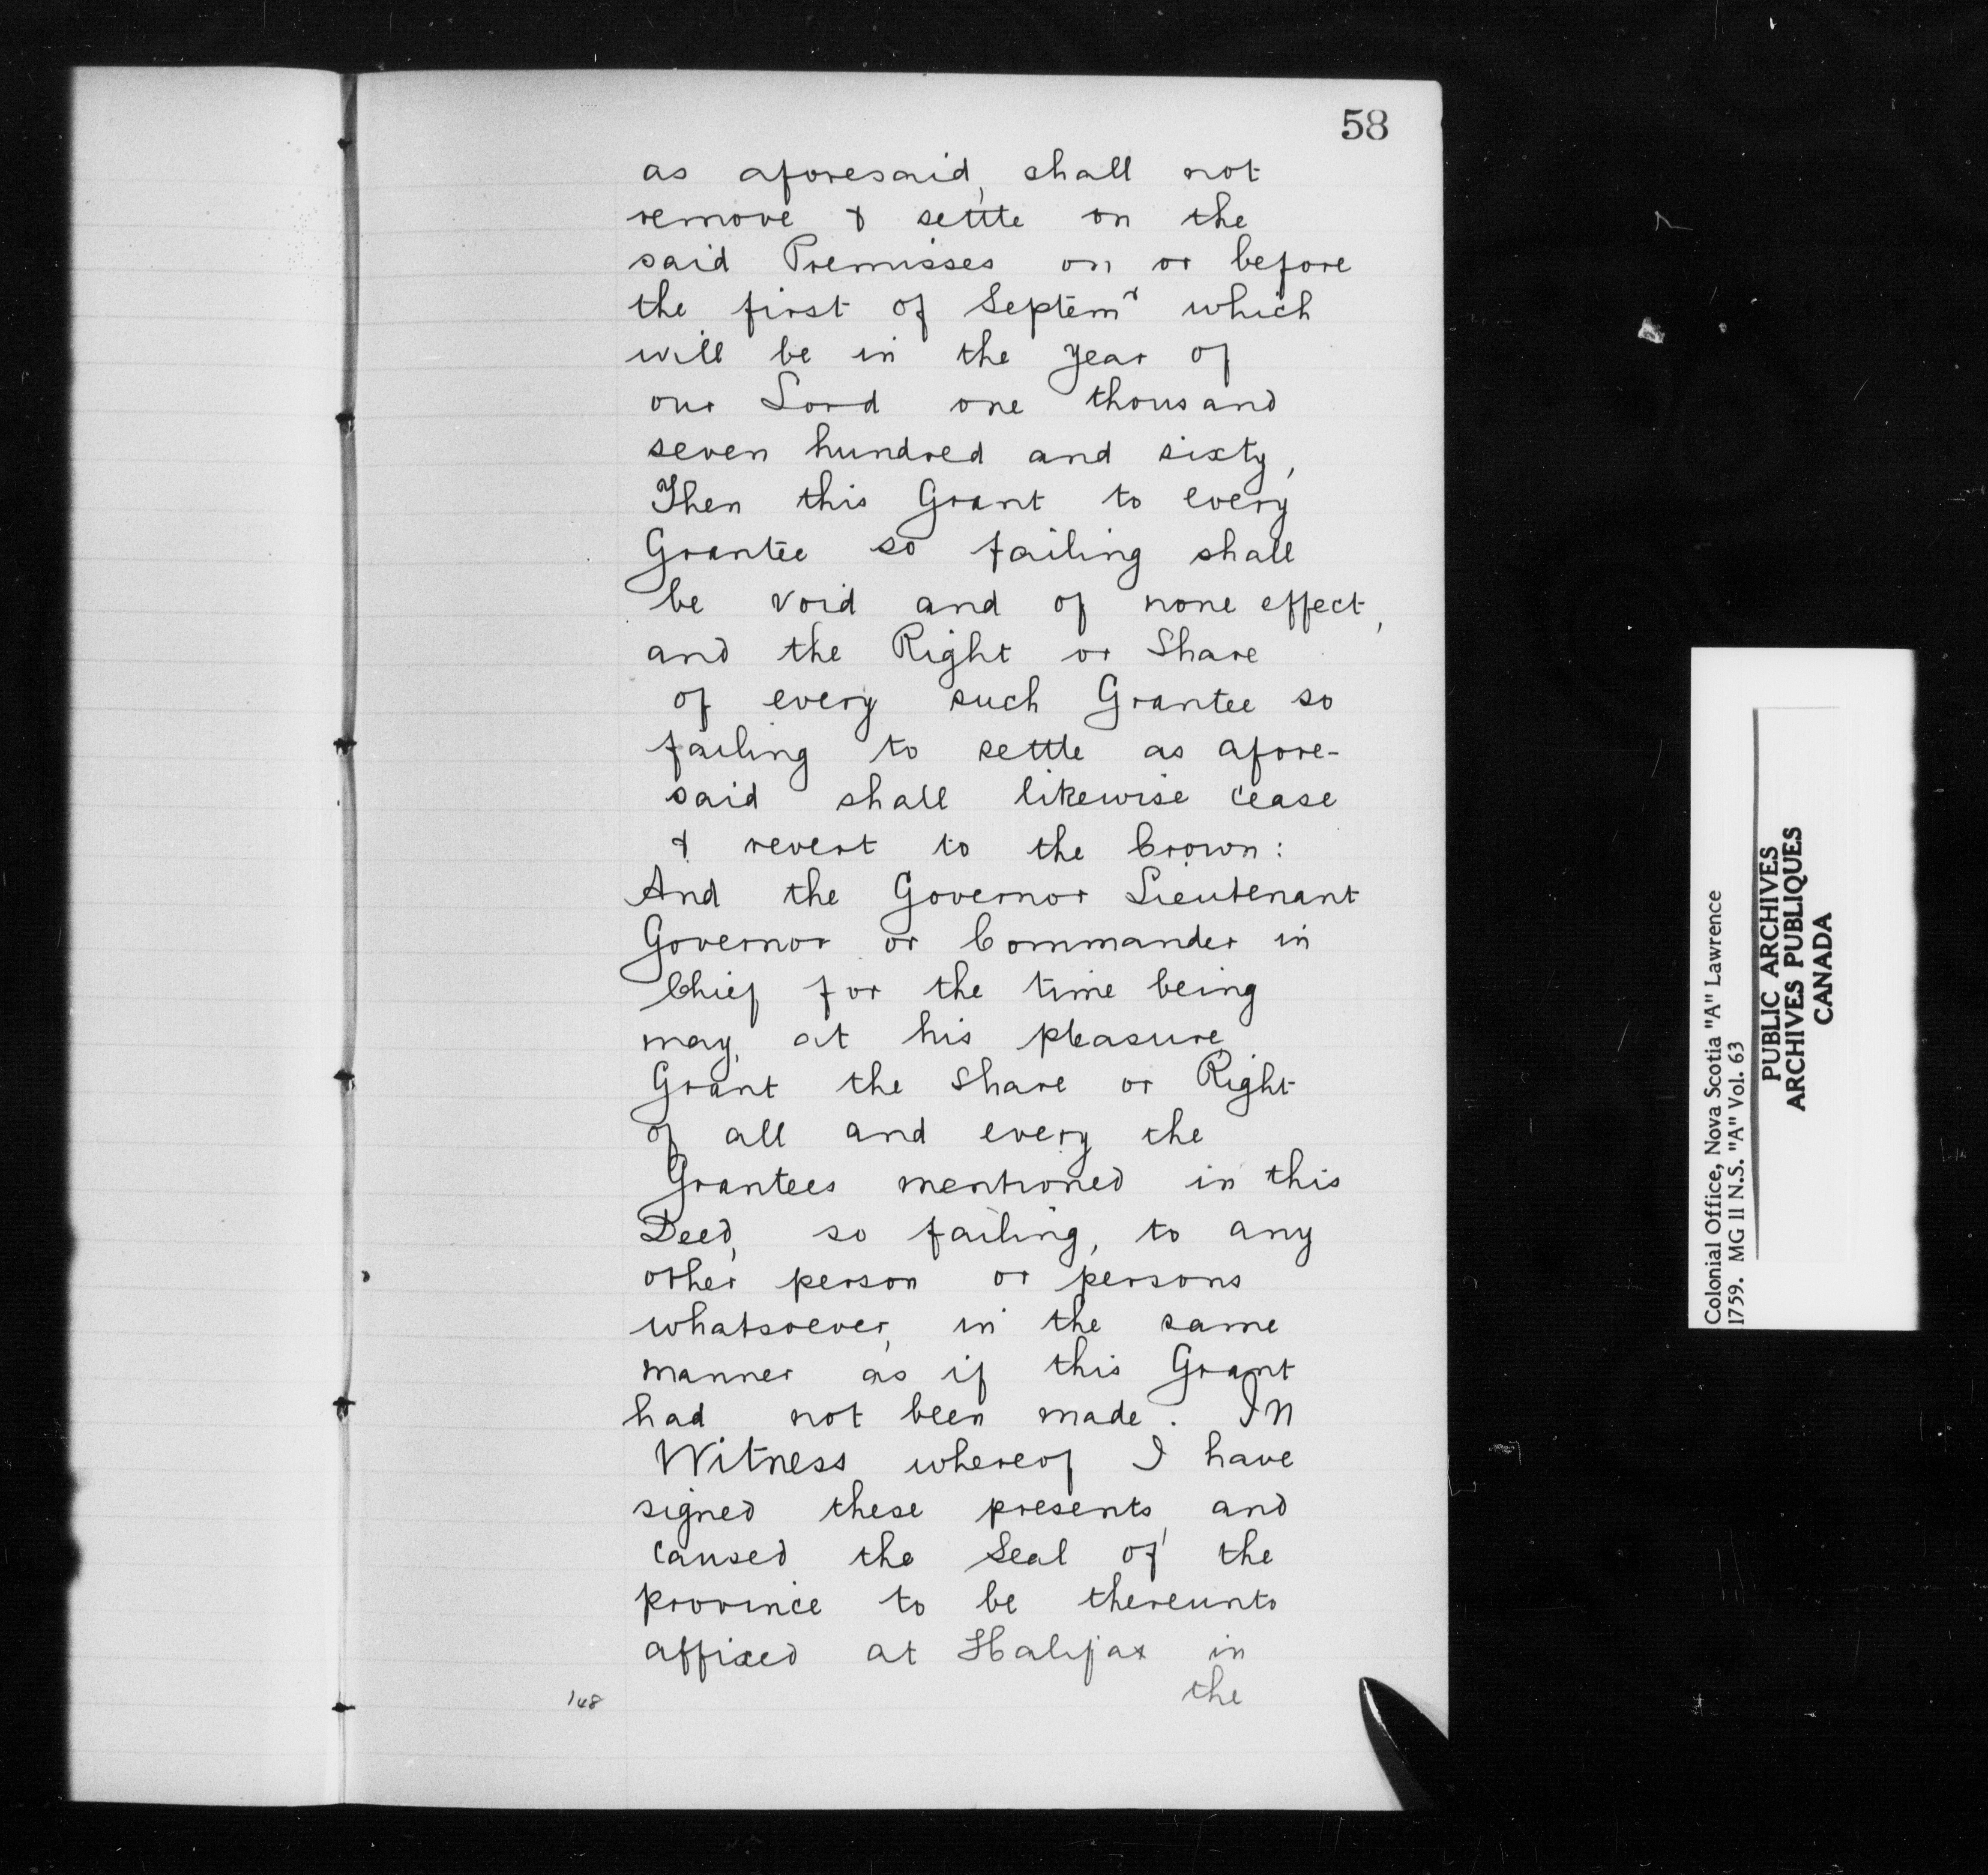 58
as aforesaid, shall not
remove & settle on the
said Premisses on or before
the first of Septemr which
will be in the year of
our Lord one thousand
seven hundred and sixty,
Then this Grant to every
Grantee so failing shall
be void and of none effect,
and the Right or Share
of every such Grantee so
failing to settle as afore-
said shall likewise cease
& revert to the Crown:
And the Governor Lieutenant
Governor or Commander in
Chief for the time being
may, at his pleasure,
Grant the Share or Right
of all and every the
Grantees mentioned in this
Deed, so failing, to any
other person or persons
whatsoever, in the same
manner as if this Grant
had not been made. In
Witness whereof I have
signed these presents, and
caused the Seal of the
province to be thereunto
affixed at Halifax in
the
148
Colonial Office, Nova Scotia "A" Lawrence
1759. MG 11 N.S. "A" Vol. 63
PUBLIC ARCHIVES
ARCHIVES PUBLIQUES
CANADA